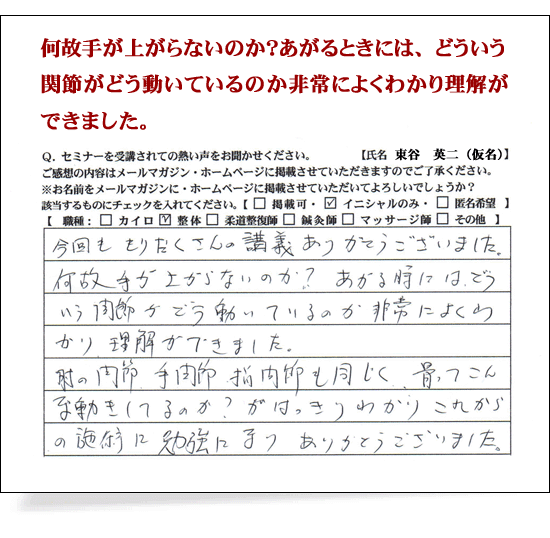 何故手が上がらないのか?あがるときには、どういう
関節がどう動いているのか非常によくわかり理解が
できました。
Q. セミナーを受講されての熱い声をお聞かせください。 【氏名 東谷 英二（仮名）】
ご感想の内容はメールマガジン・ホームページに掲載させていただきますのでご了承ください。
※お名前をメールマガジン・ホームページに掲載させていただいてよろしいでしょうか？
該当するものにチェックを入れてください。【 □ 掲載可・ ☑ イニシャルのみ・ □ 匿名希望 】
【 職種： □ カイロ ☑ 整体 □ 柔道整復師 □ 鍼灸師 □ マッサージ師 □ その他 】
今回ももりだくさんの講義ありがとうございました。
何故手が上がらないのか？ あがる時には、どう
いう関節がどう動いているのか非常によくわ
かり理解ができました。
肘の関節、手関節、指関節も同じく、骨ってこん
な動きしてるのか？がはっきりわかりこれから
の施術に勉強になり ありがとうございました。